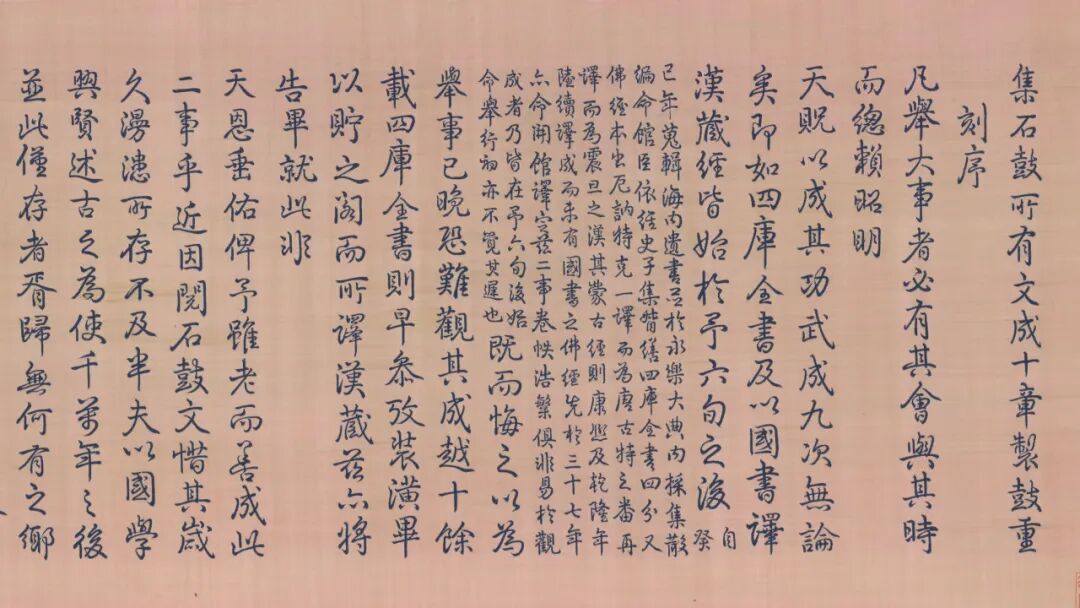 集石鼓所有文成十章製鼓重
刻序
凡舉大事者必有其會與其時
而總賴昭明
天貺以成其功武成九次無論
矣即如四庫全書及以國書譯
漢藏經皆始於予六旬之後自
癸
巳年蒐輯海內遺書並於永樂大典內採集散
編命館臣依經史子集皆繕四庫全書四分又
佛經本出厄訥特克一譯而為唐古特之番再
譯而為震旦之漢其蒙古經則康熙及乾隆年
陸續譯成而未有國書之佛經先於三十七年
亦命開館譯定茲二事卷帙浩繁俱非易於觀
成者乃皆在予六旬後始
命舉行初亦不覺其遲也
既而悔之以為
舉事已晚恐難觀其成越十餘
載四庫全書則早叅攷裝潢畢
以貯之閣而所譯漢藏茲亦將
告畢就此非
天恩垂佑俾予雖老而善成此
二事乎近因閱石鼓文惜其歲
久漫漶所存不及半夫以國學
興賢述古之為使千萬年之後
並此僅存者胥歸無何有之鄉